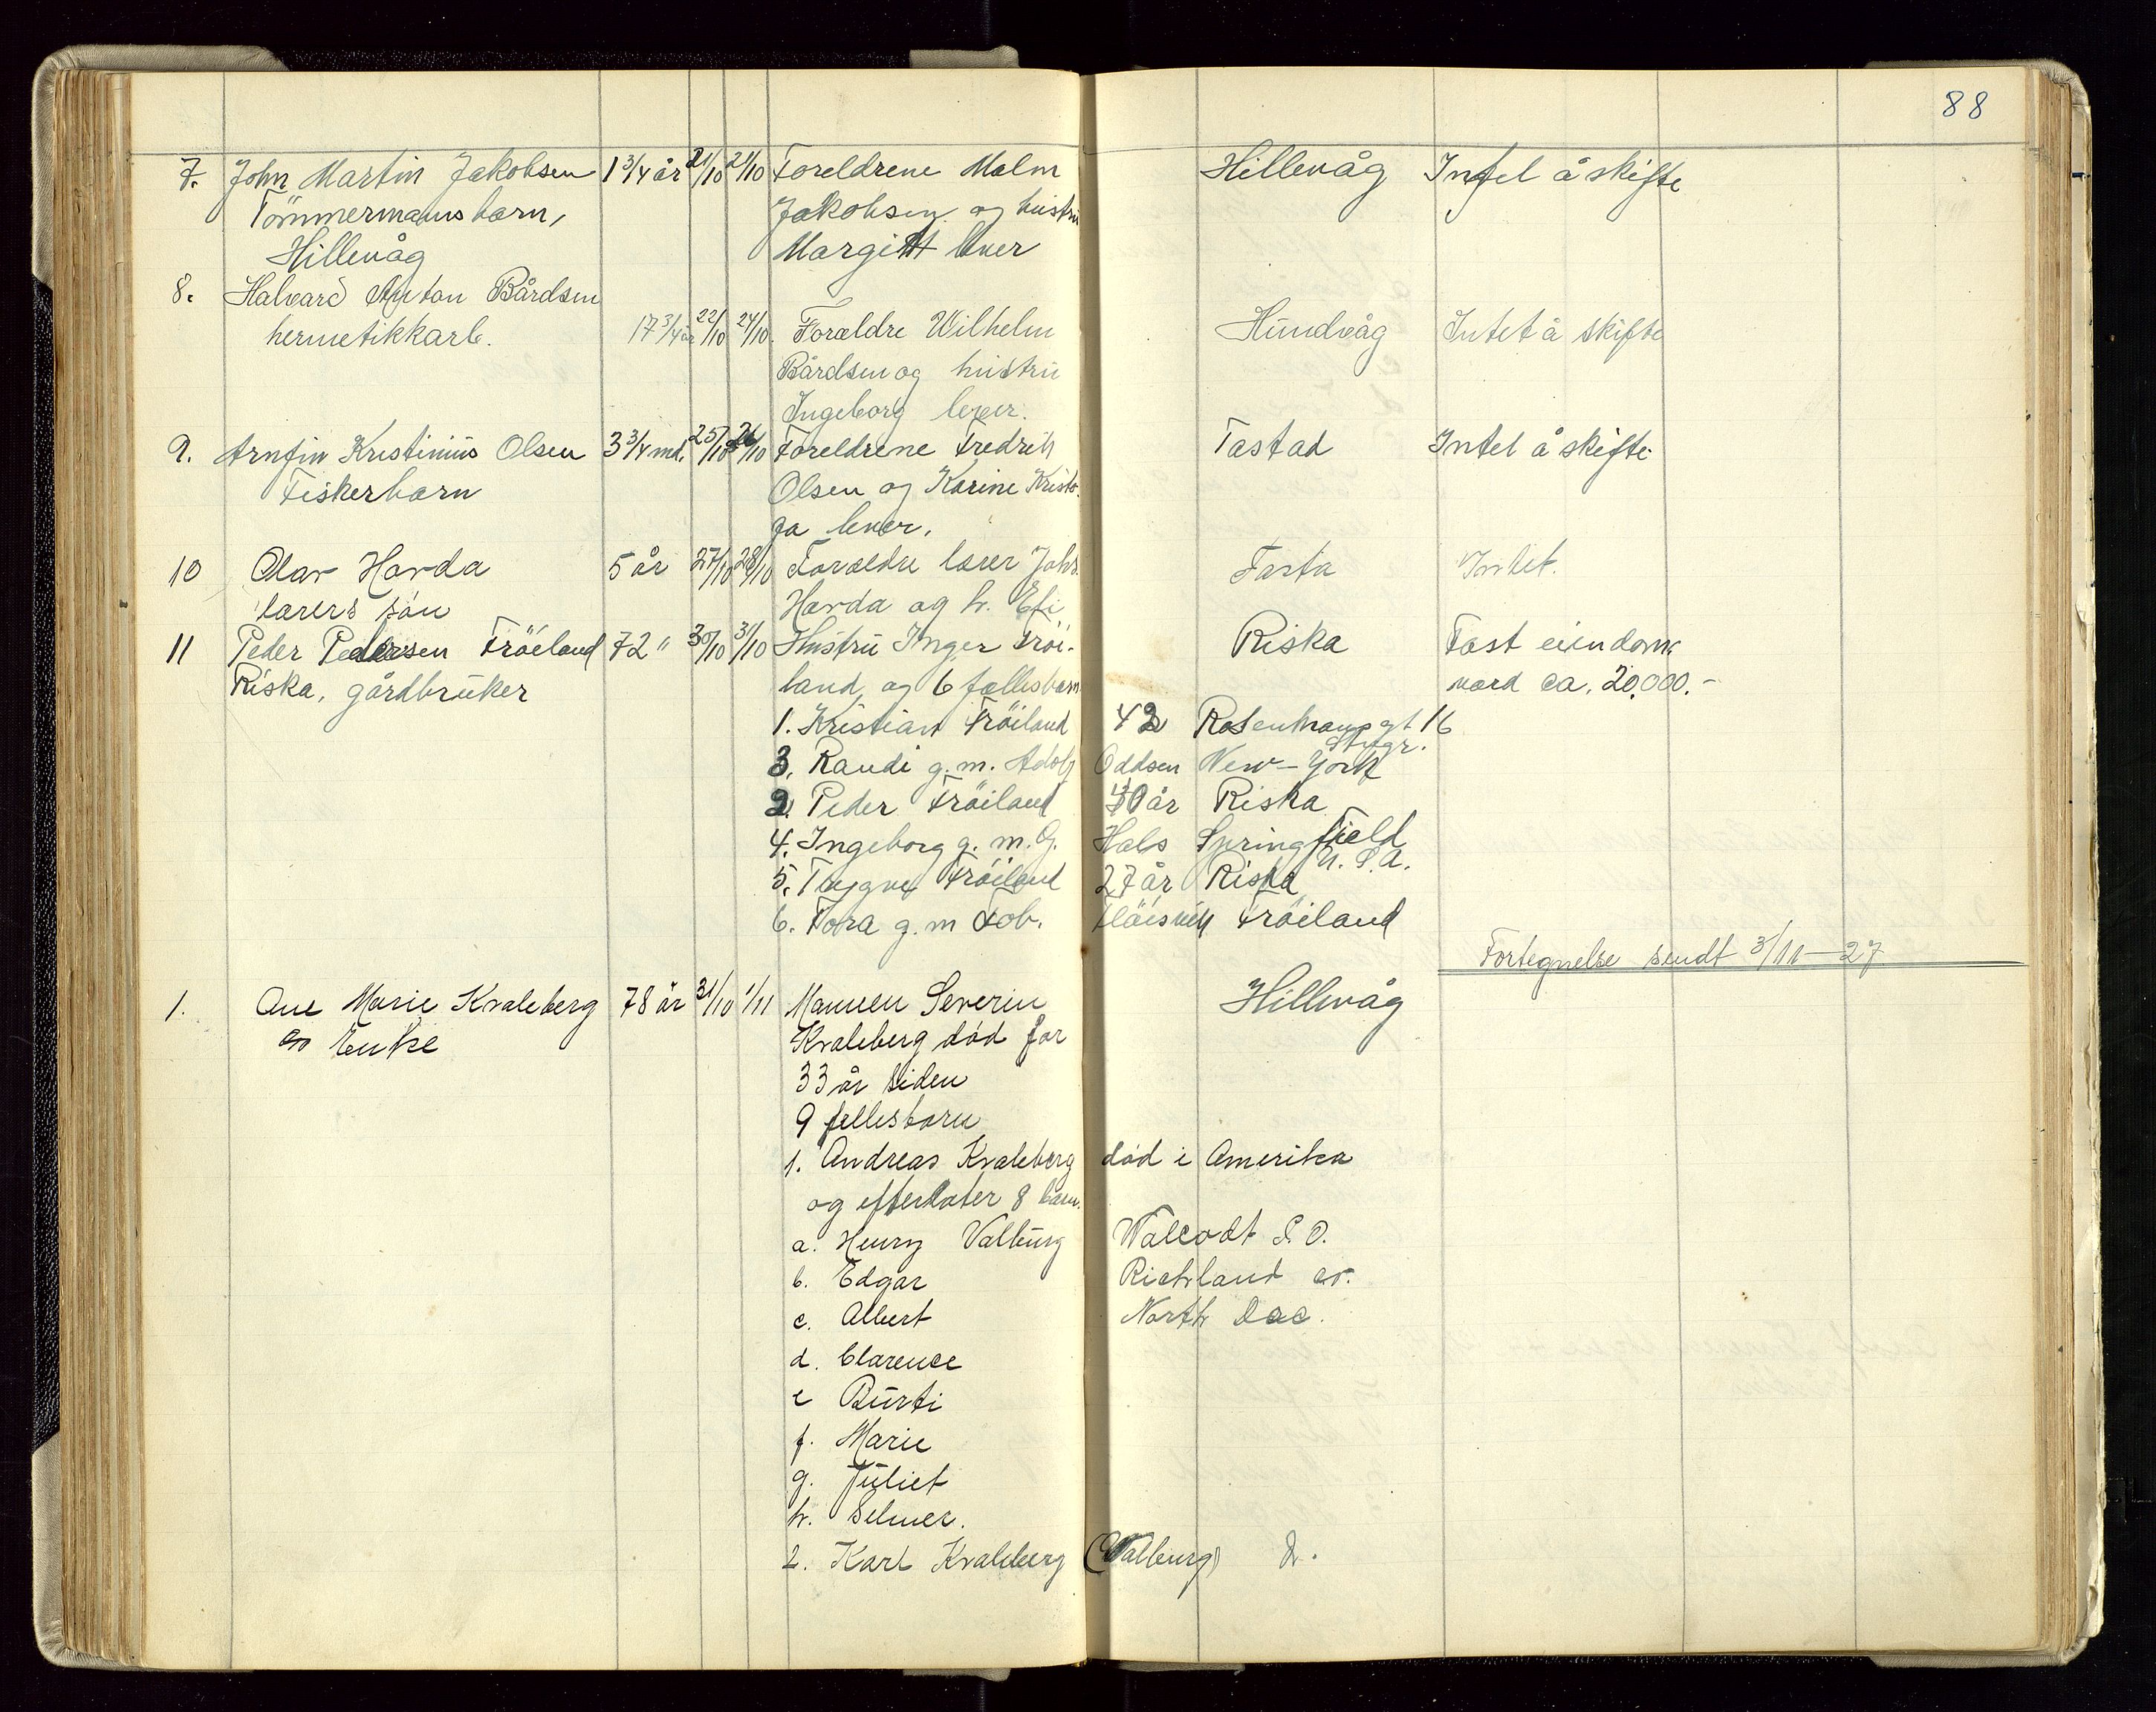 88
7. John Martin Jakobsen 1 3/4 år 21/10 21/10 Foreldrene Malm Hillevåg Intet å skifte
Tömmermansbarn, Jakobsen og hustru
Hillevåg Margitt lever
8. Halvard Anton Bårdsen
hermetikkarb. 17 3/4 år 22/10 24/10. Forældre Wilhelm Hundvåg Intet å skifte
Bårdsen og hustru
Ingeborg lever.
9. Arnfin Kristinius Olsen 3 3/4 md. 25/10 26/10 Foreldrene Fredrik Tastad Intet å skifte.
Fiskerbarn Olsen og Karine Kristo-
fa lever.
10 Olav Havda 5 år 27/10 28/10 Forældre lærer Johs. Tasta Intet.
lærers sön Havda og h. Eli
11 Peder Pedersen Fröiland 72 " 30/10 31/10 Hustru Inger Fröi- Riska Fast eiendom
Riska, gårdbruker land, og 6 fællesbarn værd ca. 20.000.-
1. Kristian Fröiland 42 Rosenkransgt 16
Stvgr.
3. Randi g.m. Adolf Oddsen New-York
2. Peder Fröiland 40 år Riska
4. Ingeborg g.m. G. Hals Springfield
U.S.A.
5. Trygve Fröiland 27 år Riska
6. Tora g.m Tob. Flöisvik Fröiland
Fortegnelse sendt 3/11-27
1. Ane Marie Kvaleberg 78 år 31/10 1/11 Mannen Severin Hillevåg
Enke Kvaleberg död for
33 år siden
9 fellesbarn
1. Andreas Kvaleberg död i Amerika
og efterlater 8 barn.
a. Henry Valburg Walcodt S.D.
b. Edgar Richland co.
c. Albert North Dac.
d. Clarence
e Burti
f. Marie
g. Juliet
h. Selmer.
2. Karl Kvaleberg (Walburg)